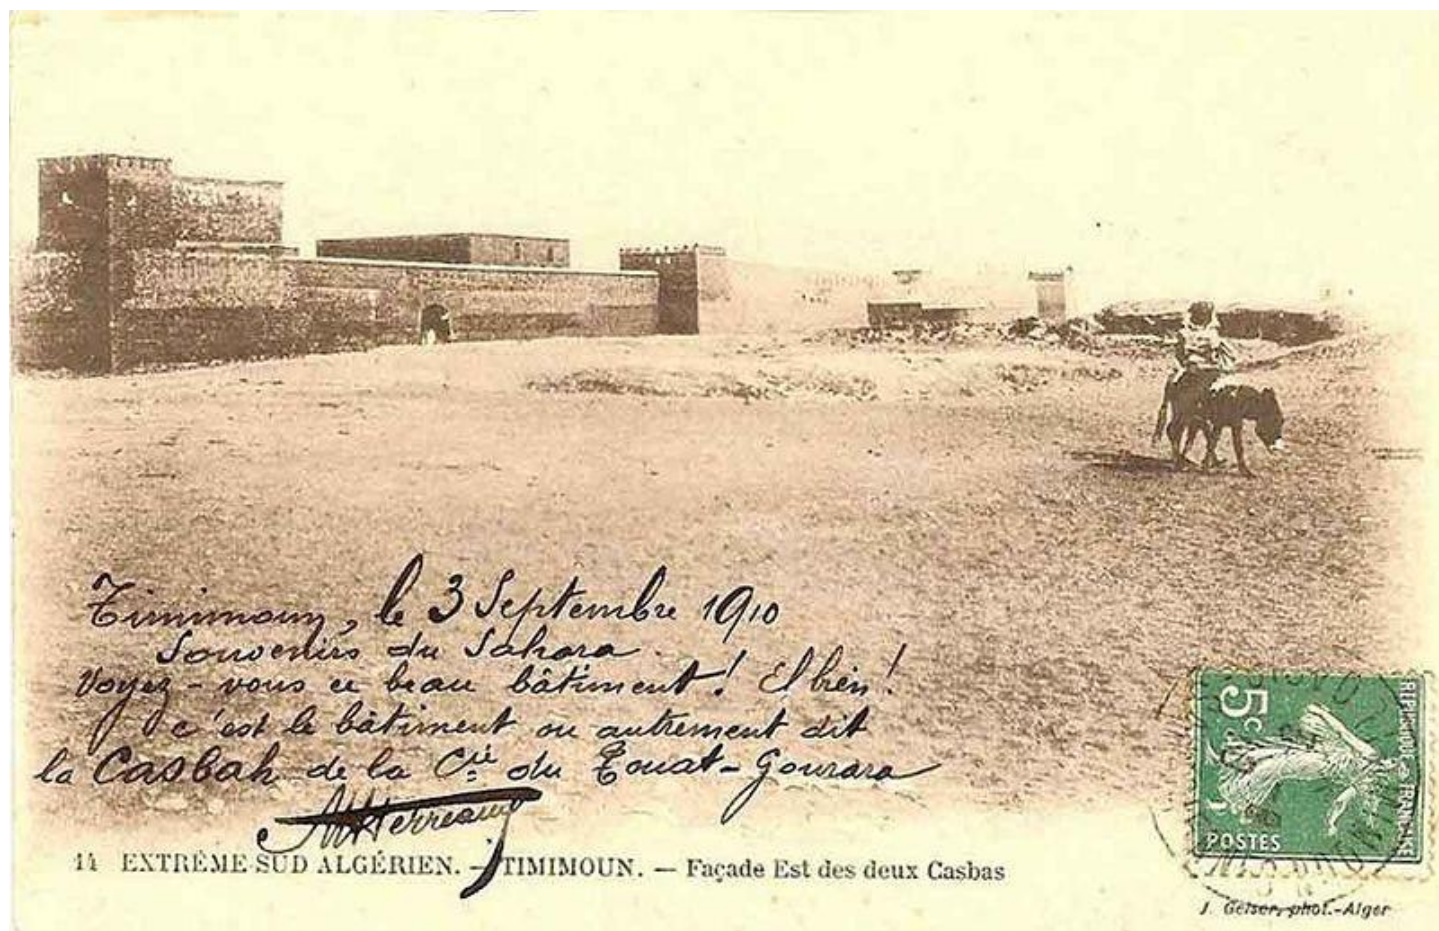 Timimoun, le 3 Septembre 1910
Souvenirs du Sahara.
Voyez-vous ce beau bâtiment! Eh bien!
c'est le bâtiment ou autrement dit
la Casbah de la Cie du Touat-Gourara
14 EXTRÊME-SUD ALGÉRIEN. - TIMIMOUN. - Façade Est des deux Casbas
5c
REPUBLIQUE FRANÇAISE
POSTES
J. Geiser, phot.-Alger